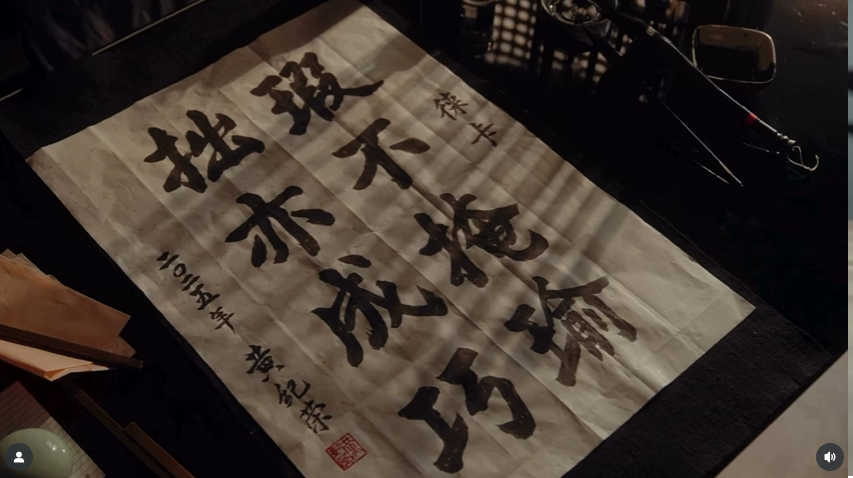 徠卡
瑕不掩瑜
拙亦成巧
二〇二五年
黄紀荣